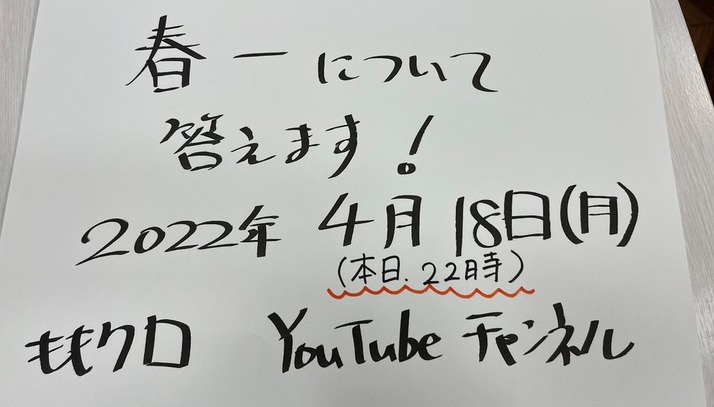 春一について
答えます!
2022年 4月18日(月)
(本日.22時)
ももクロ YouTube チャンネル